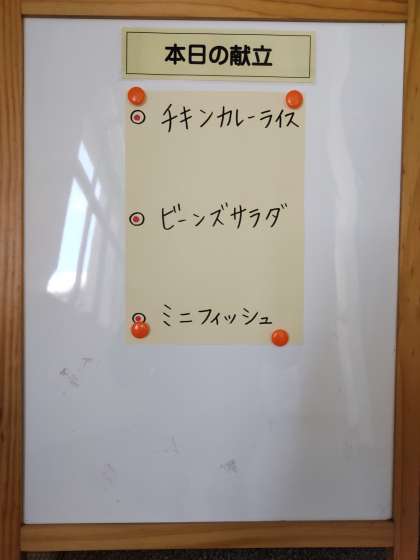 本日の献立
チキンカレーライス
ビーンズサラダ
ミニフィッシュ